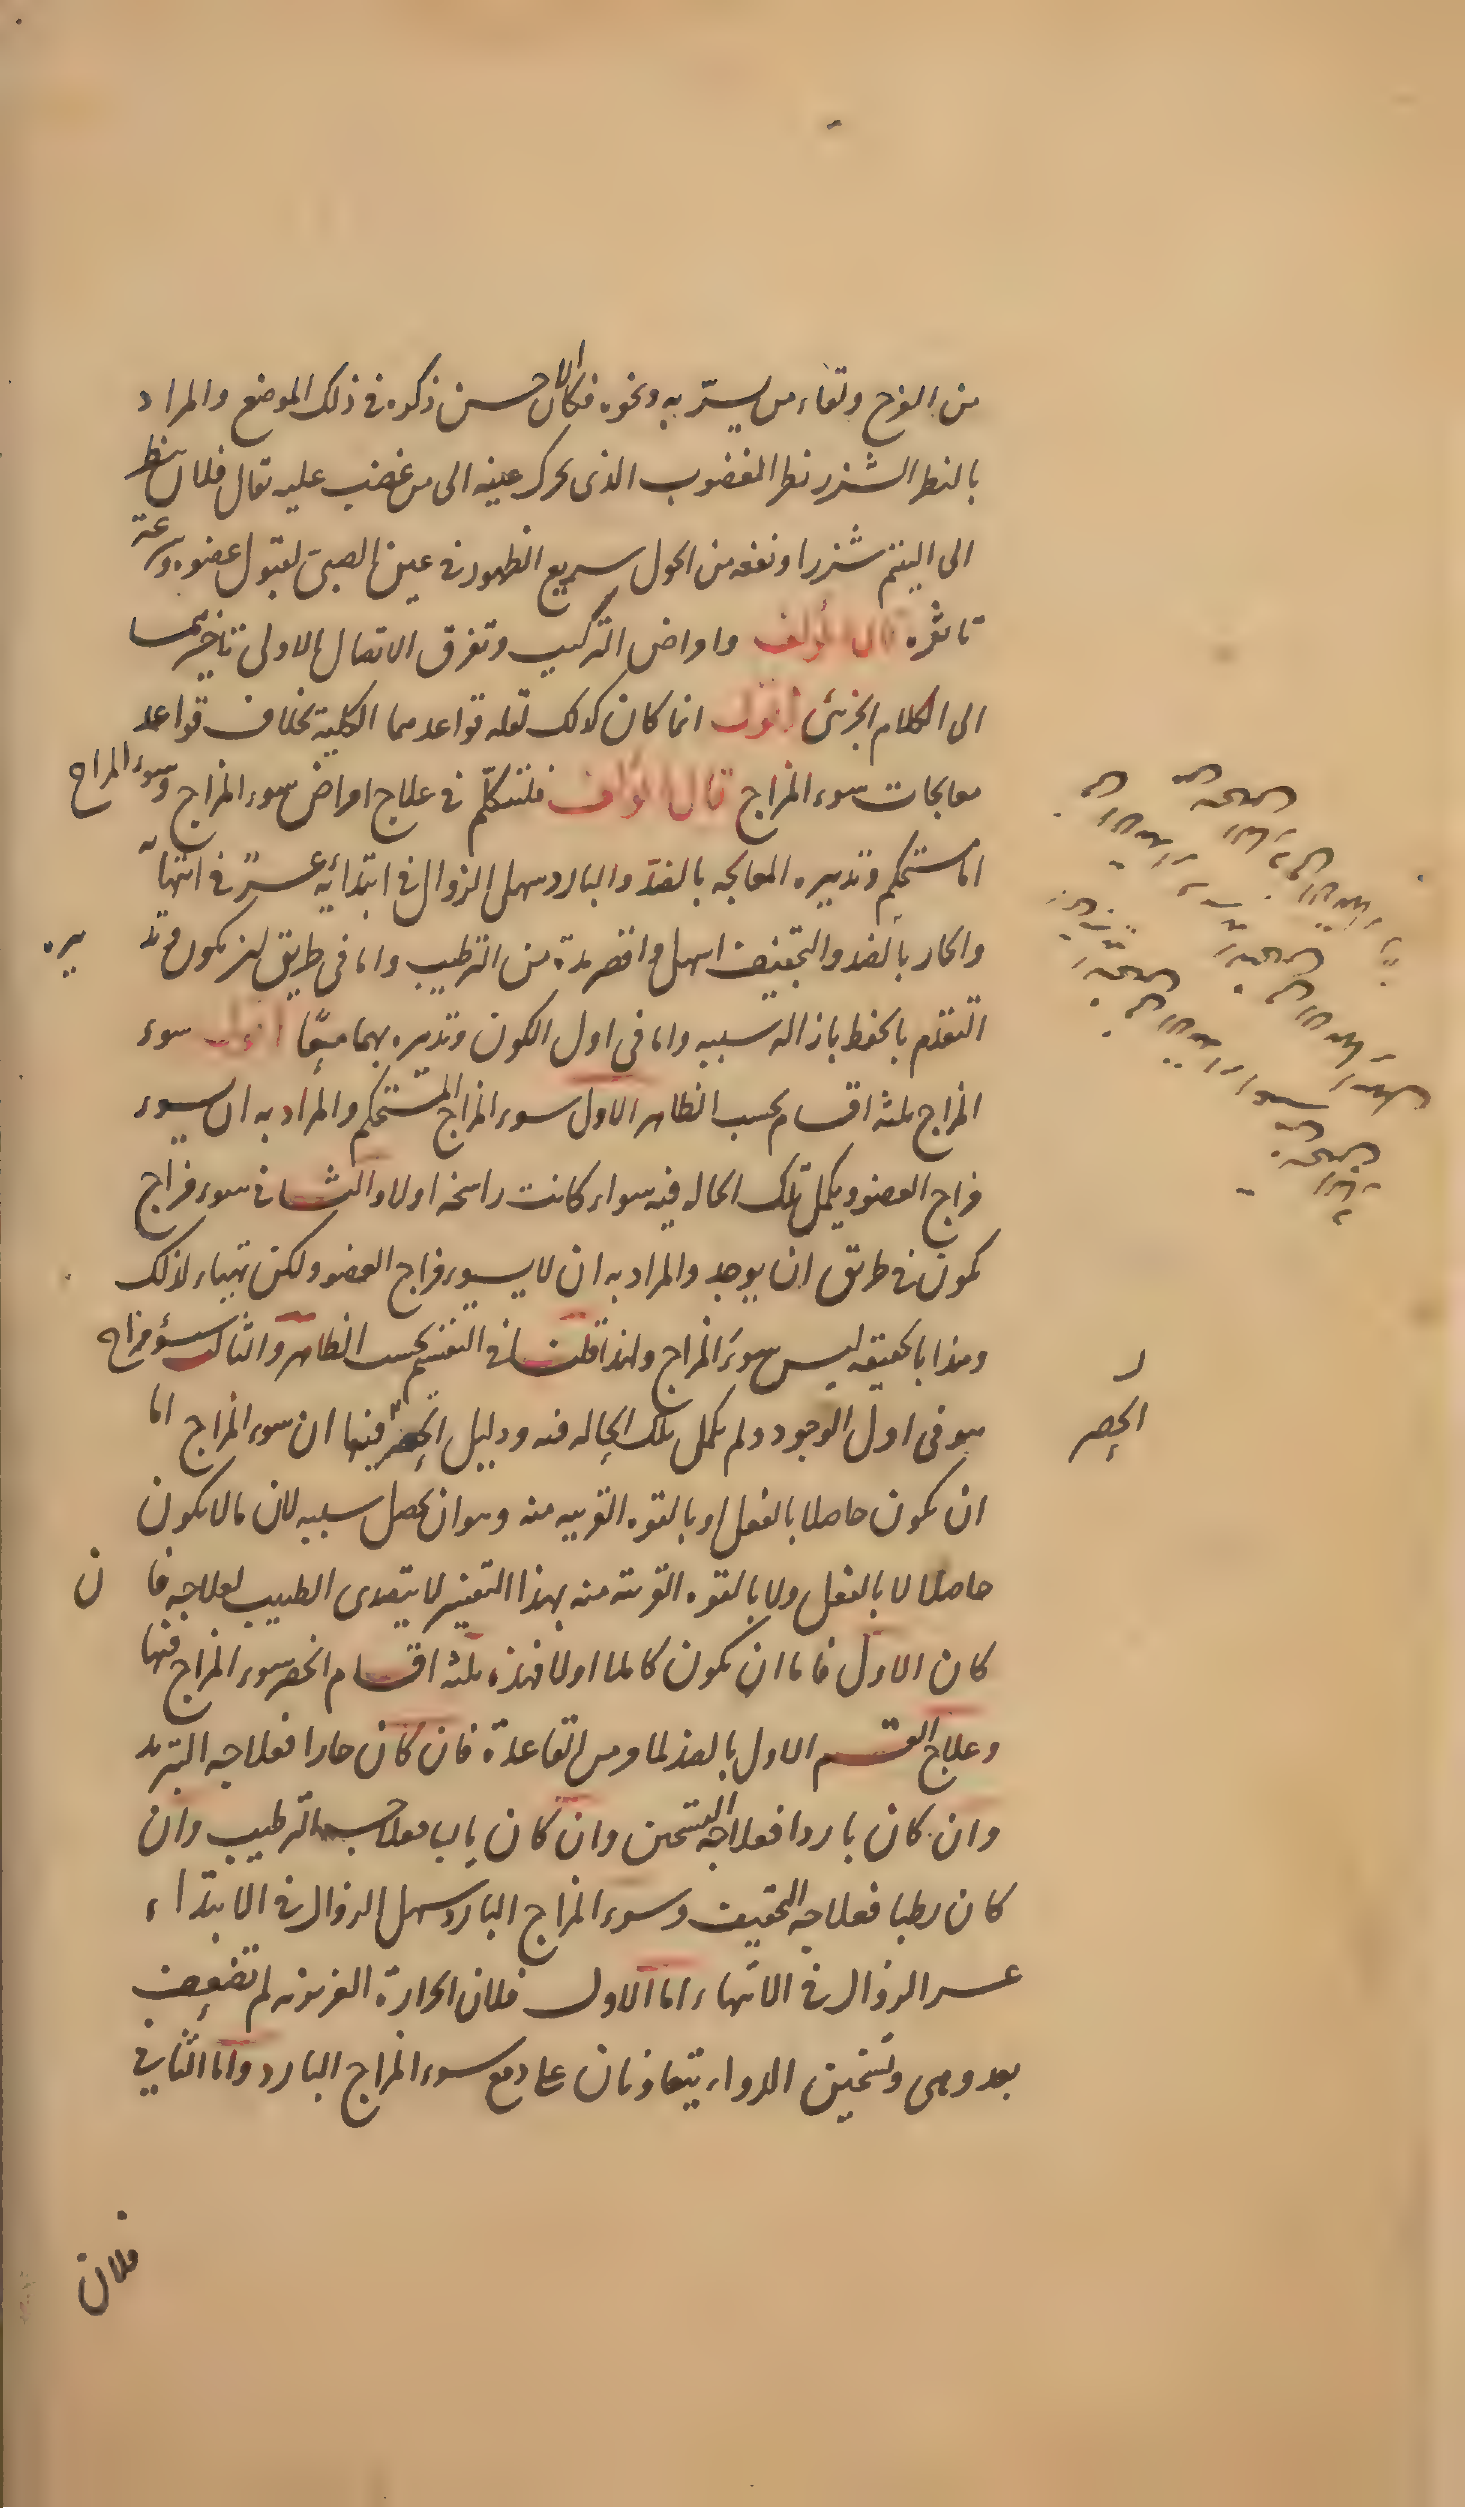 من الفرح ولقاء من يسرّ به ونحوه فكان الاحسن ذكره فى ذلك الموضع والمراد
بالنظر الشزر نظر المغضوب الذى يحرك عينه الى من غضب عليه يقال فلان ينظر
الى اليتيم شزرا ونفعه من الحول سريع الظهور فى عين الصبى لقبول عضوه وسرعة
تاثره قال المؤلف وامراض التركيب وتفرق الاتصال الاولى تاخيرهما
الى الكلام الجزئى اقول انما كان كذلك لقلة قواعدهما الكلية بخلاف قواعد
معالجات سوء المزاج قال المؤلف فلنتكلّم فى علاج امراض سوء المزاج وسوء المزاج
اما مستحكم وتدبيره المعالجه بالضدّ والبارد سهل الزوال فى ابتدائه عسر فى انتهائه
والحار بالضد والتجفيف اسهل واقصر مدة من الترطيب واما فى طريق ان يكون وتد بيره
التقدم بالحفظ بازالة سببه واما فى اول الكون وتدبيره بهما معًا اقول سوء
المزاج ثلثة اقسام بحسب الظاهر الاول سوء المزاج المستحكم والمراد به ان يسوء
مزاج العضو ويكمل تلك الحاله فيه سواء كانت راسخه اولا والثانى سوء مزاج
يكون فى طريق ان يوجد والمراد به ان لا يسوء مزاج العضو ولكن تهياء لذلك
وهذا بالحقيقه ليس سوء المزاج ولهذا قلنا فى التقسيم بحسب الظاهر والثالث سوء مزاج
هو فى اول الوجود ولم يكمل تلك الحاله فيه ودليل الحصر فيها ان سوء المزاج اما
الحصر
ان يكون حاصلا بالفعل او بالقوه القريبه منه وهو ان يحصل سببه لان ما لا يكون
حاصلا لا بالفعل ولا بالقوه القريبة منه بهذا التفسير لا يتصدى الطبيب لعلاجه فا ن
كان الاول فاما ان يكون كاملا اولا فهذه ثلثة اقسام انحصر سوء المزاج فيها
وعلاج القسم الاول بالضد لما مر من القاعدة فان كان حارا فعلاجه التبريد
وان كان باردا فعلاجه التسخين وان كان يابسا فعلاجه الترطيب وان
كان رطبا فعلاجه التجفيف وسوء المزاج البارد سهل الزوال فى الابتداء
عسر الزوال فى الانتهاء اما الاول فلان الحرارة الغريزيه لم تضعف
بعد وهى وتسخين الدواء يتعاونان على دفع سوء المزاج البارد واما الثانى
فلان